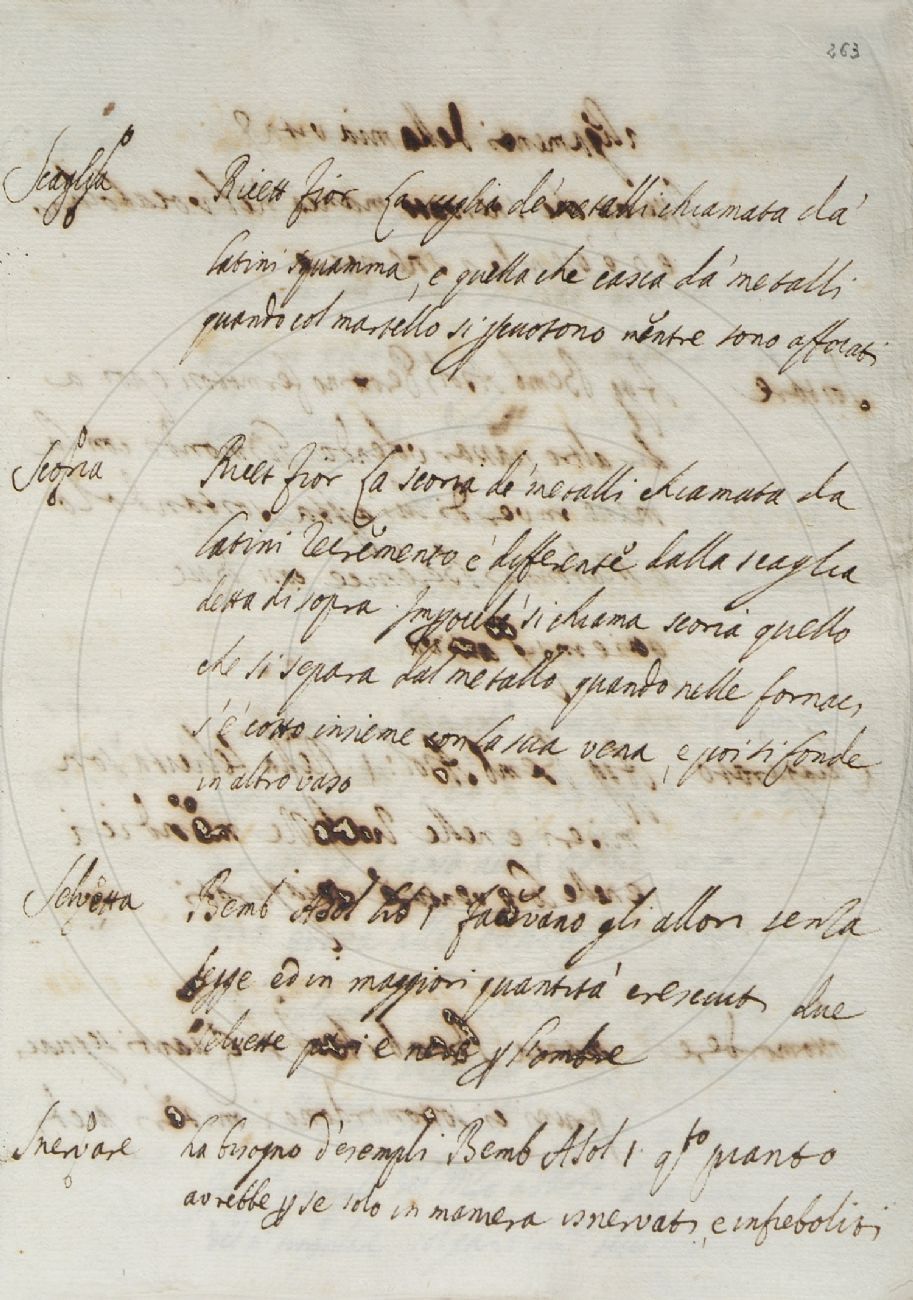 263
Scaglia Ricett Fior La scaglia de' metalli chiamata da'
latini squamma, e quella che casca da' metalli
quando col martello si percuotono mentre sono affocati
Scoria Ricet Fior La scoria de' metalli chiamata da
latini recremento è differente dalla scaglia
detta di sopra si chiama scoria quello
che si separa dal metallo quando nelle fornaci
s'è cotto insieme con la sua vena, e poi si fonde
in altro vaso
Selvetta Bemb Asol lib 1 facevano gli allori senza
legge ed in maggiori quantità cresciuti due
selvette pari e nere p l'ombre
Snervare ha bisogno d'esempli Bemb Asol 1 qsto pianto
avrebbe p se solo in maniera isnervati, e infieboliti